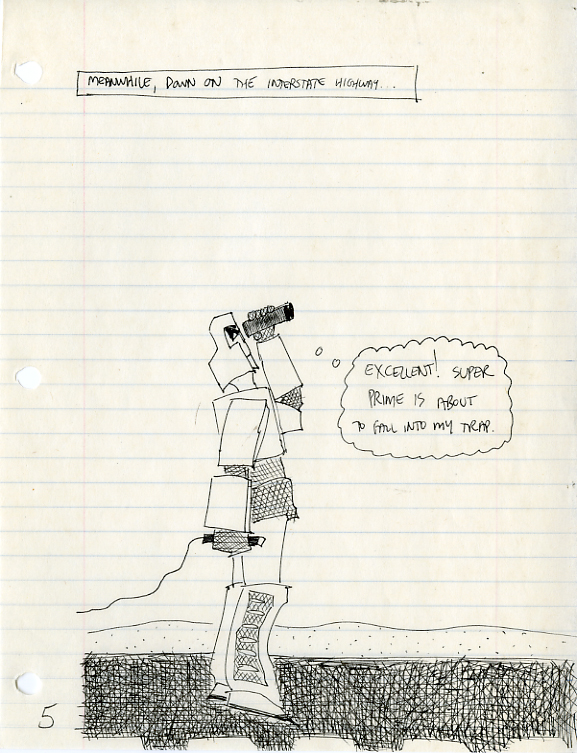 MEANWHILE, DOWN ON THE INTERSTATE HIGHWAY...
EXCELLENT! SUPER
PRIME IS ABOUT
TO FALL INTO MY TRAP.
5